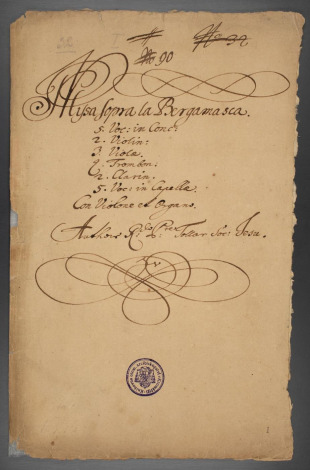 No 90
Missa sopra la Bergamasca.
5. Voc: in Conc:
2. Violin:
3. Viola.
Trombon:
2. Clarin.
5. Voc: in Capella:
Con Violone et Organo.
Authore Rdo Pre Tollar Soc: Jesu.